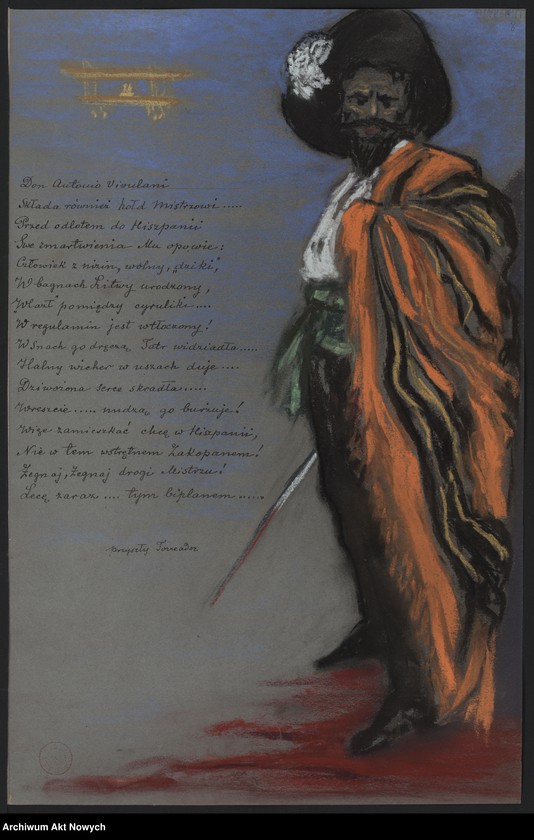 Don Antonio Vivulani
Składa również hołd Mistrzowi.....
Przed odlotem do Hiszpanii
Swe zmartwienia Mu opowie:
Człowiek z nizin, wolny, "dziki",
W bagnach Litwy urodzony,
"Wlazł" pomiędzy cyruliki....
W regulamin jest wtłoczony!
W snach go dręczą Tatr widziadła.....
Halny wicher w uszach duje....
Dziwożona serce skradła.....
Wreszcie ..... nudzą go burżuje!
Więc zamieszkać chcę w Hiszpanii,
Nie w tem wstrętnem Zakopanem!
Żegnaj, Żegnaj drogi Mistrzu!
Lecę zaraz .... tym biplanem.....
przyszły Toreador
Archiwum Akt Nowych